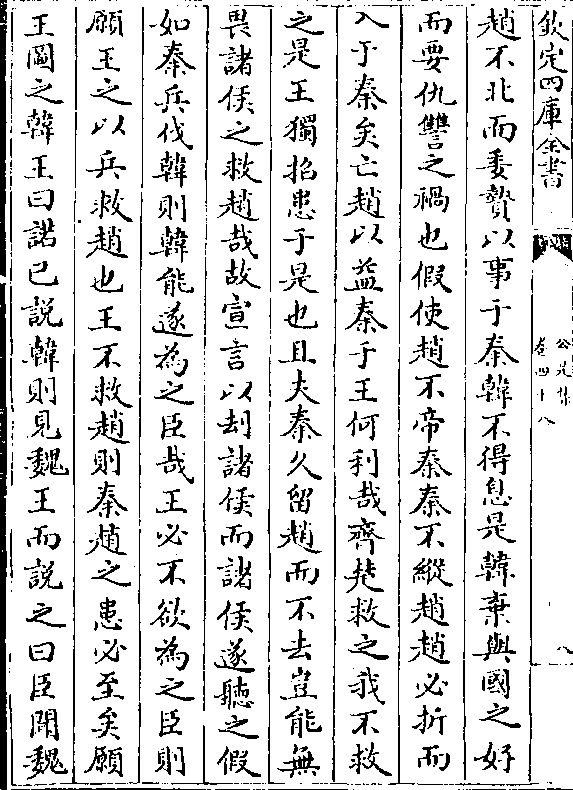 欽定四庫全書
公是集
卷四十八
八
趙不北而委贄以事于秦韓不得息是韓棄與國之好
而要仇讐之禍也假使趙不帝秦秦不縱趙趙必折而
入于秦矣亡趙以益秦于王何利哉齊楚救之我不救
之是王獨招患于是也且夫秦久留趙而不去豈能無
畏諸侯之救趙哉故宣言以刦諸侯而諸侯遂聽之假
如秦兵伐韓則韓能遂為之臣哉王必不欲為之臣則
願王之以兵救趙也王不救趙則秦趙之患必至矣願
王圖之韓王曰諾已説韓則見魏王而説之曰臣聞魏